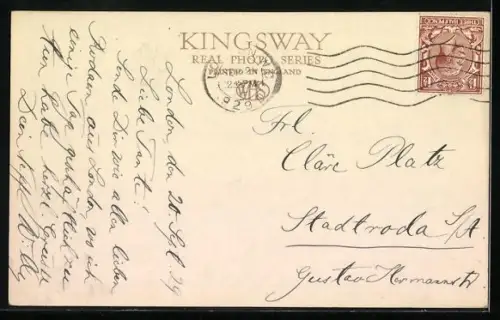 KINGSWAY
REAL PHOTO SERIES
PRINTED IN ENGLAND
London, den 20. Sept. 29
Liebe Tante!
Sende Dir wie allen lieben
Rodaern aus London, wo ich
einige Tage
habe, herzl. Grüsse
Dein Neffe Willy
Frl.
Cläre Platz
Stadtroda S/A
Gustav Hermannstr
THREE HALFPENCE